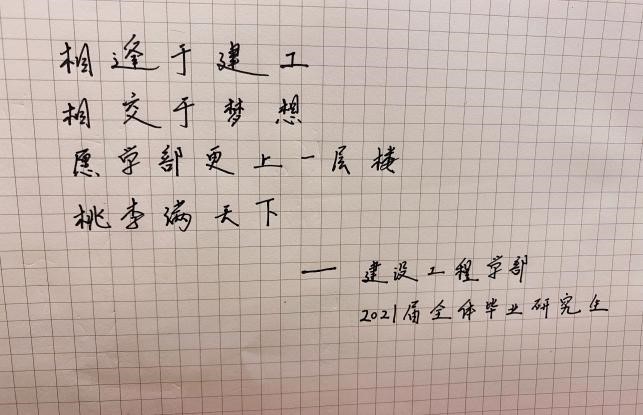 相逢于建工
相交于梦想
愿学部更上一层楼
桃李满天下
— 建设工程学部
2021届全体毕业研究生